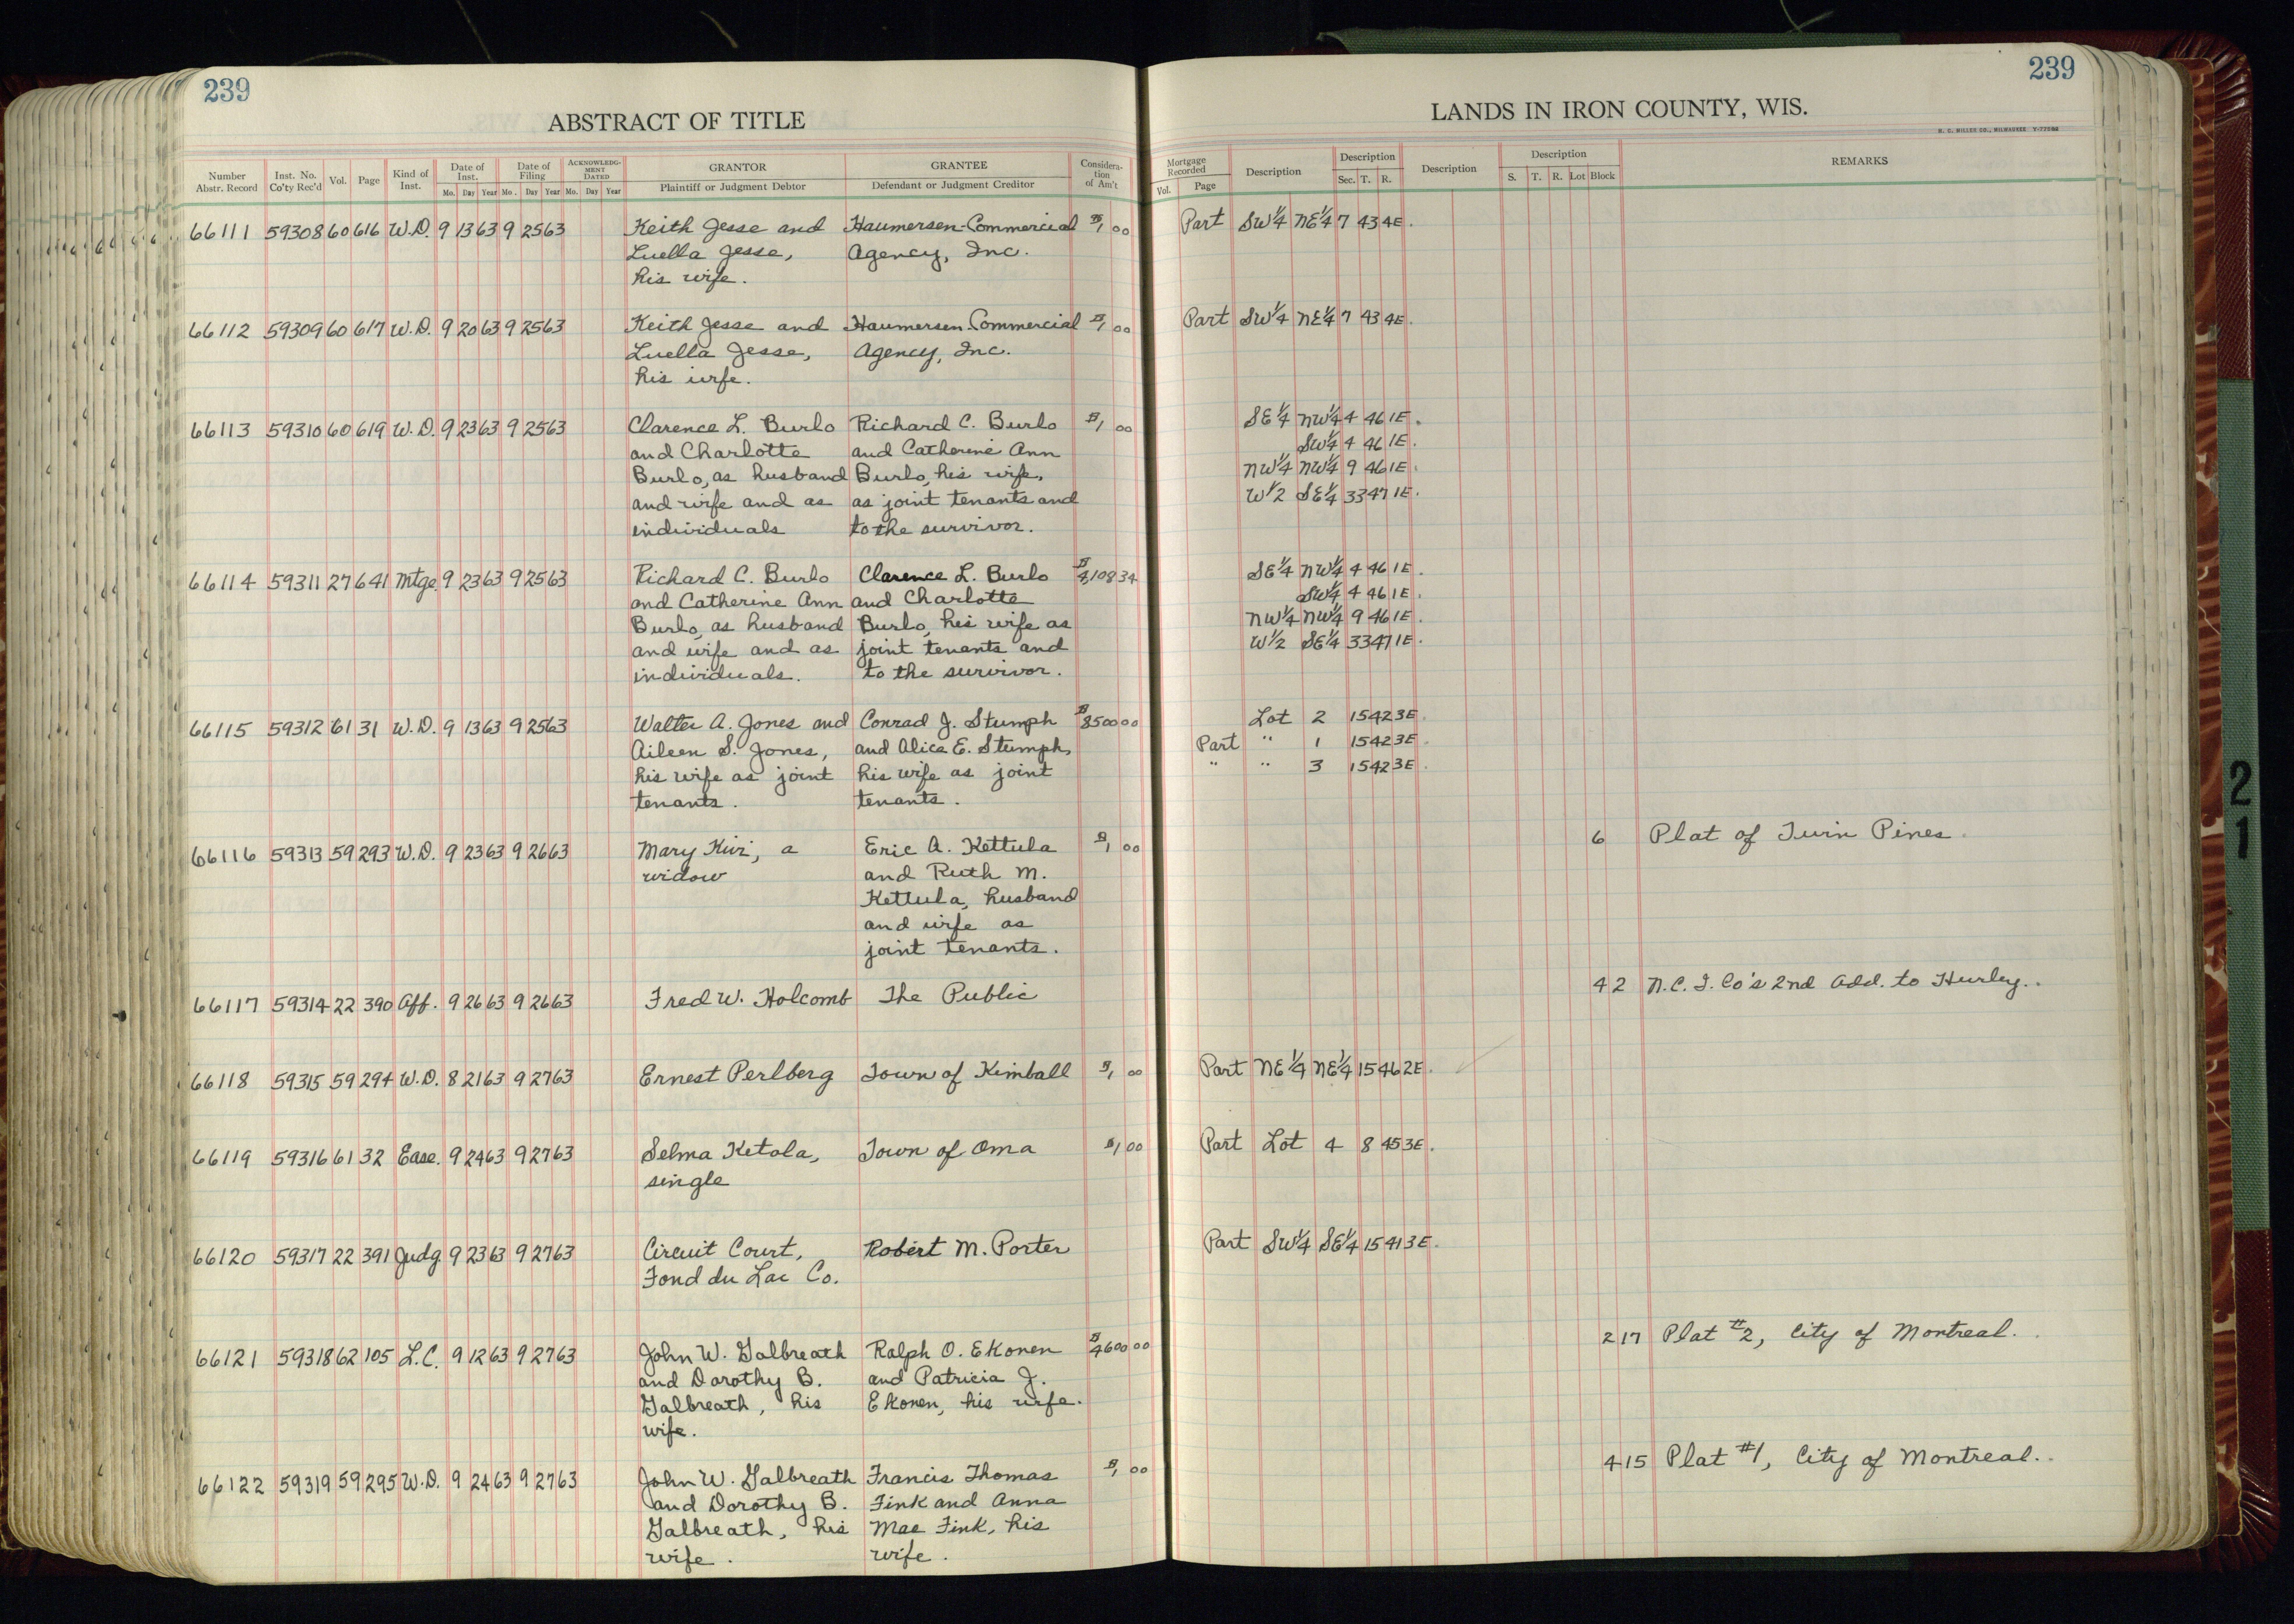 239
239
ABSTRACT OF TITLE
LANDS IN IRON COUNTY, WIS.
H. C. MILLER CO., MILWAUKEE
Number Abstr. Record | Inst. No. Co'ty Rec'd | Vol. | Page | Kind of Inst. | Date of Inst. Mo. Day Year | Date of Filing Mo. Day Year | ACKNOWLEDGMENT DATED Mo. Day Year | GRANTOR Plaintiff or Judgment Debtor | GRANTEE Defendant or Judgment Creditor | Consideration of Am't | Mortgage Recorded Vol. Page | Description | Description Sec. T. R. | Description | Description S. T. R. Lot Block | REMARKS
66111 59308 60 616 W.D. 9 13 63 9 25 63 Keith Jesse and Haumersen-Commercial $1 00 Part SW1/4 NE1/4 7 43 4E.
Luella Jesse, Agency, Inc.
his wife.
66112 59309 60 617 W.D. 9 20 63 9 25 63 Keith Jesse and Haumersen-Commercial $1 00 Part SW1/4 NE1/4 7 43 4E.
Luella Jesse, Agency, Inc.
his wife.
66113 59310 60 619 W.D. 9 23 63 9 25 63 Clarence L. Burlo Richard C. Burlo $1 00 SE1/4 NW1/4 4 46 1E.
and Charlotte and Catherine Ann SW1/4 4 46 1E.
Burlo, as husband Burlo, his wife, NW1/4 NW1/4 9 46 1E.
and wife and as as joint tenants and W1/2 SE1/4 33 47 1E.
individuals to the survivor.
66114 59311 27 641 Mtge. 9 23 63 9 25 63 Richard C. Burlo Clarence L. Burlo $4,108 34 SE1/4 NW1/4 4 46 1E.
and Catherine Ann and Charlotte SW1/4 4 46 1E.
Burlo, as husband Burlo, his wife as NW1/4 NW1/4 9 46 1E.
and wife and as joint tenants and W1/2 SE1/4 33 47 1E.
individuals. to the survivor.
66115 59312 61 31 W.D. 9 13 63 9 25 63 Walter A. Jones and Conrad J. Stumph $8500 00 Lot 2 15 42 3E.
Aileen S. Jones, and Alice E. Stumph, Part " 1 15 42 3E.
his wife as joint his wife as joint " " 3 15 42 3E.
tenants. tenants.
66116 59313 59 293 W.D. 9 23 63 9 26 63 Mary Kivi, a Eric A. Kettula $1 00 6 Plat of Twin Pines.
widow and Ruth M.
Kettula, husband
and wife as
joint tenants.
66117 59314 22 390 Aff. 9 26 63 9 26 63 Fred W. Holcomb The Public 42 N.C.I. Co's 2nd Add. to Hurley.
66118 59315 59 294 W.D. 8 21 63 9 27 63 Ernest Perlberg Town of Kimball $1 00 Part NE1/4 NE1/4 15 46 2E.
66119 59316 61 32 Ease. 9 24 63 9 27 63 Selma Ketola, Town of Oma $1 00 Part Lot 4 8 45 3E.
single
66120 59317 22 391 Judg. 9 23 63 9 27 63 Circuit Court, Robert M. Porter Part SW1/4 SE1/4 15 41 3E.
Fond du Lac Co.
66121 59318 62 105 L.C. 9 12 63 9 27 63 John W. Galbreath Ralph O. Ekonen $4600 00 2 17 Plat #2, City of Montreal.
and Dorothy B. and Patricia J.
Galbreath, his Ekonen, his wife.
wife.
66122 59319 59 295 W.D. 9 24 63 9 27 63 John W. Galbreath Francis Thomas $1 00 4 15 Plat #1, City of Montreal.
and Dorothy B. Fink and Anna
Galbreath, his Mae Fink, his
wife. wife.
2
1